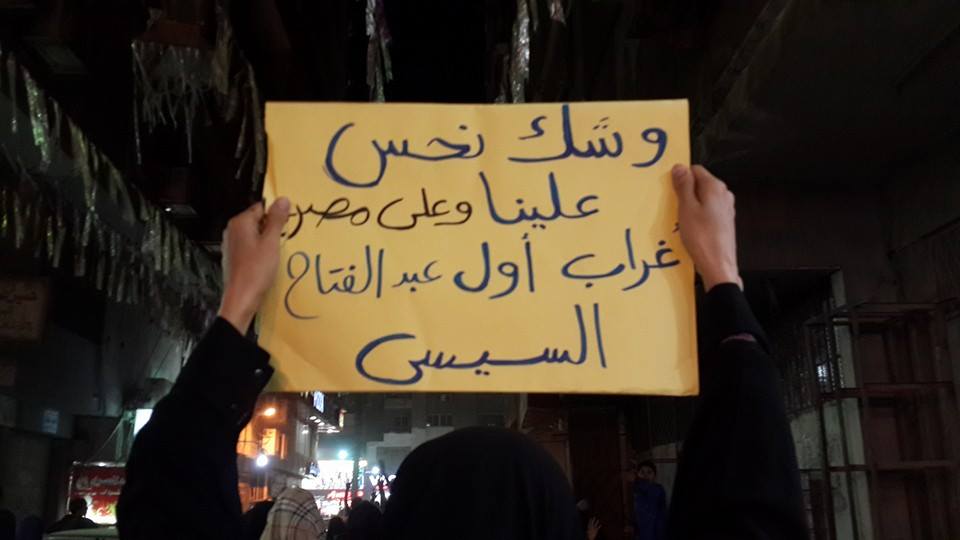 وشك نحس
علينا وعلى مصر
غراب أول عبد الفتاح
السيسى